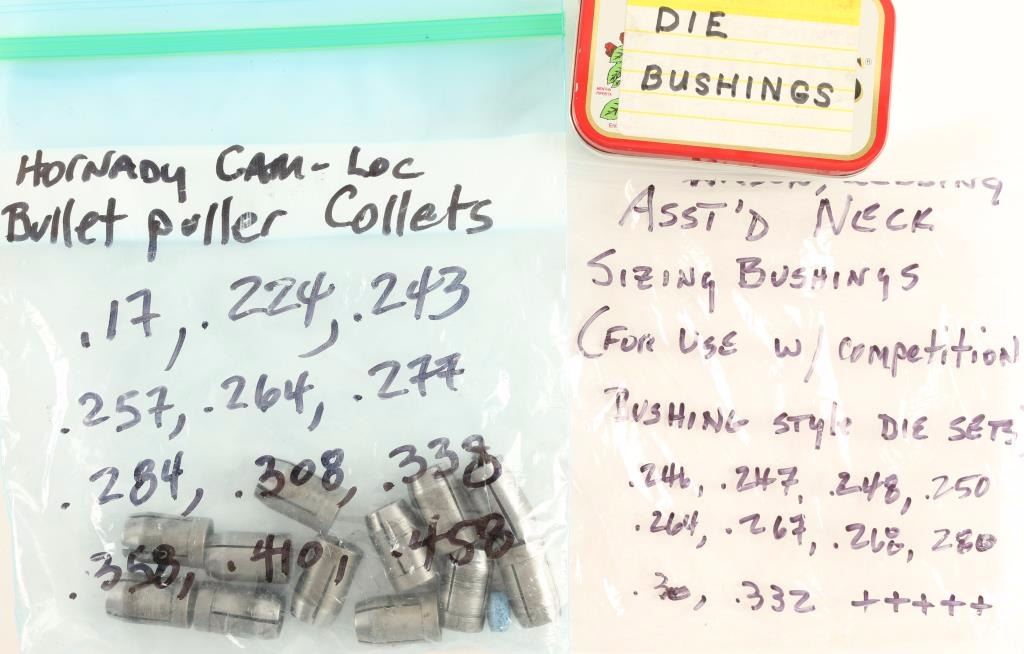 HORNADY CAM-LOC
Bullet puller Collets
.17, .224, .243
.257, .264, .277
.284, .308, .338
.358, .410, .458
DIE
BUSHINGS
ASST'D NECK
SIZING BUSHINGS
(FOR USE w/ competition
BUSHING style DIE SETS)
.246, .247, .248, .250
.264, .267, .268, 280
.332 +++++